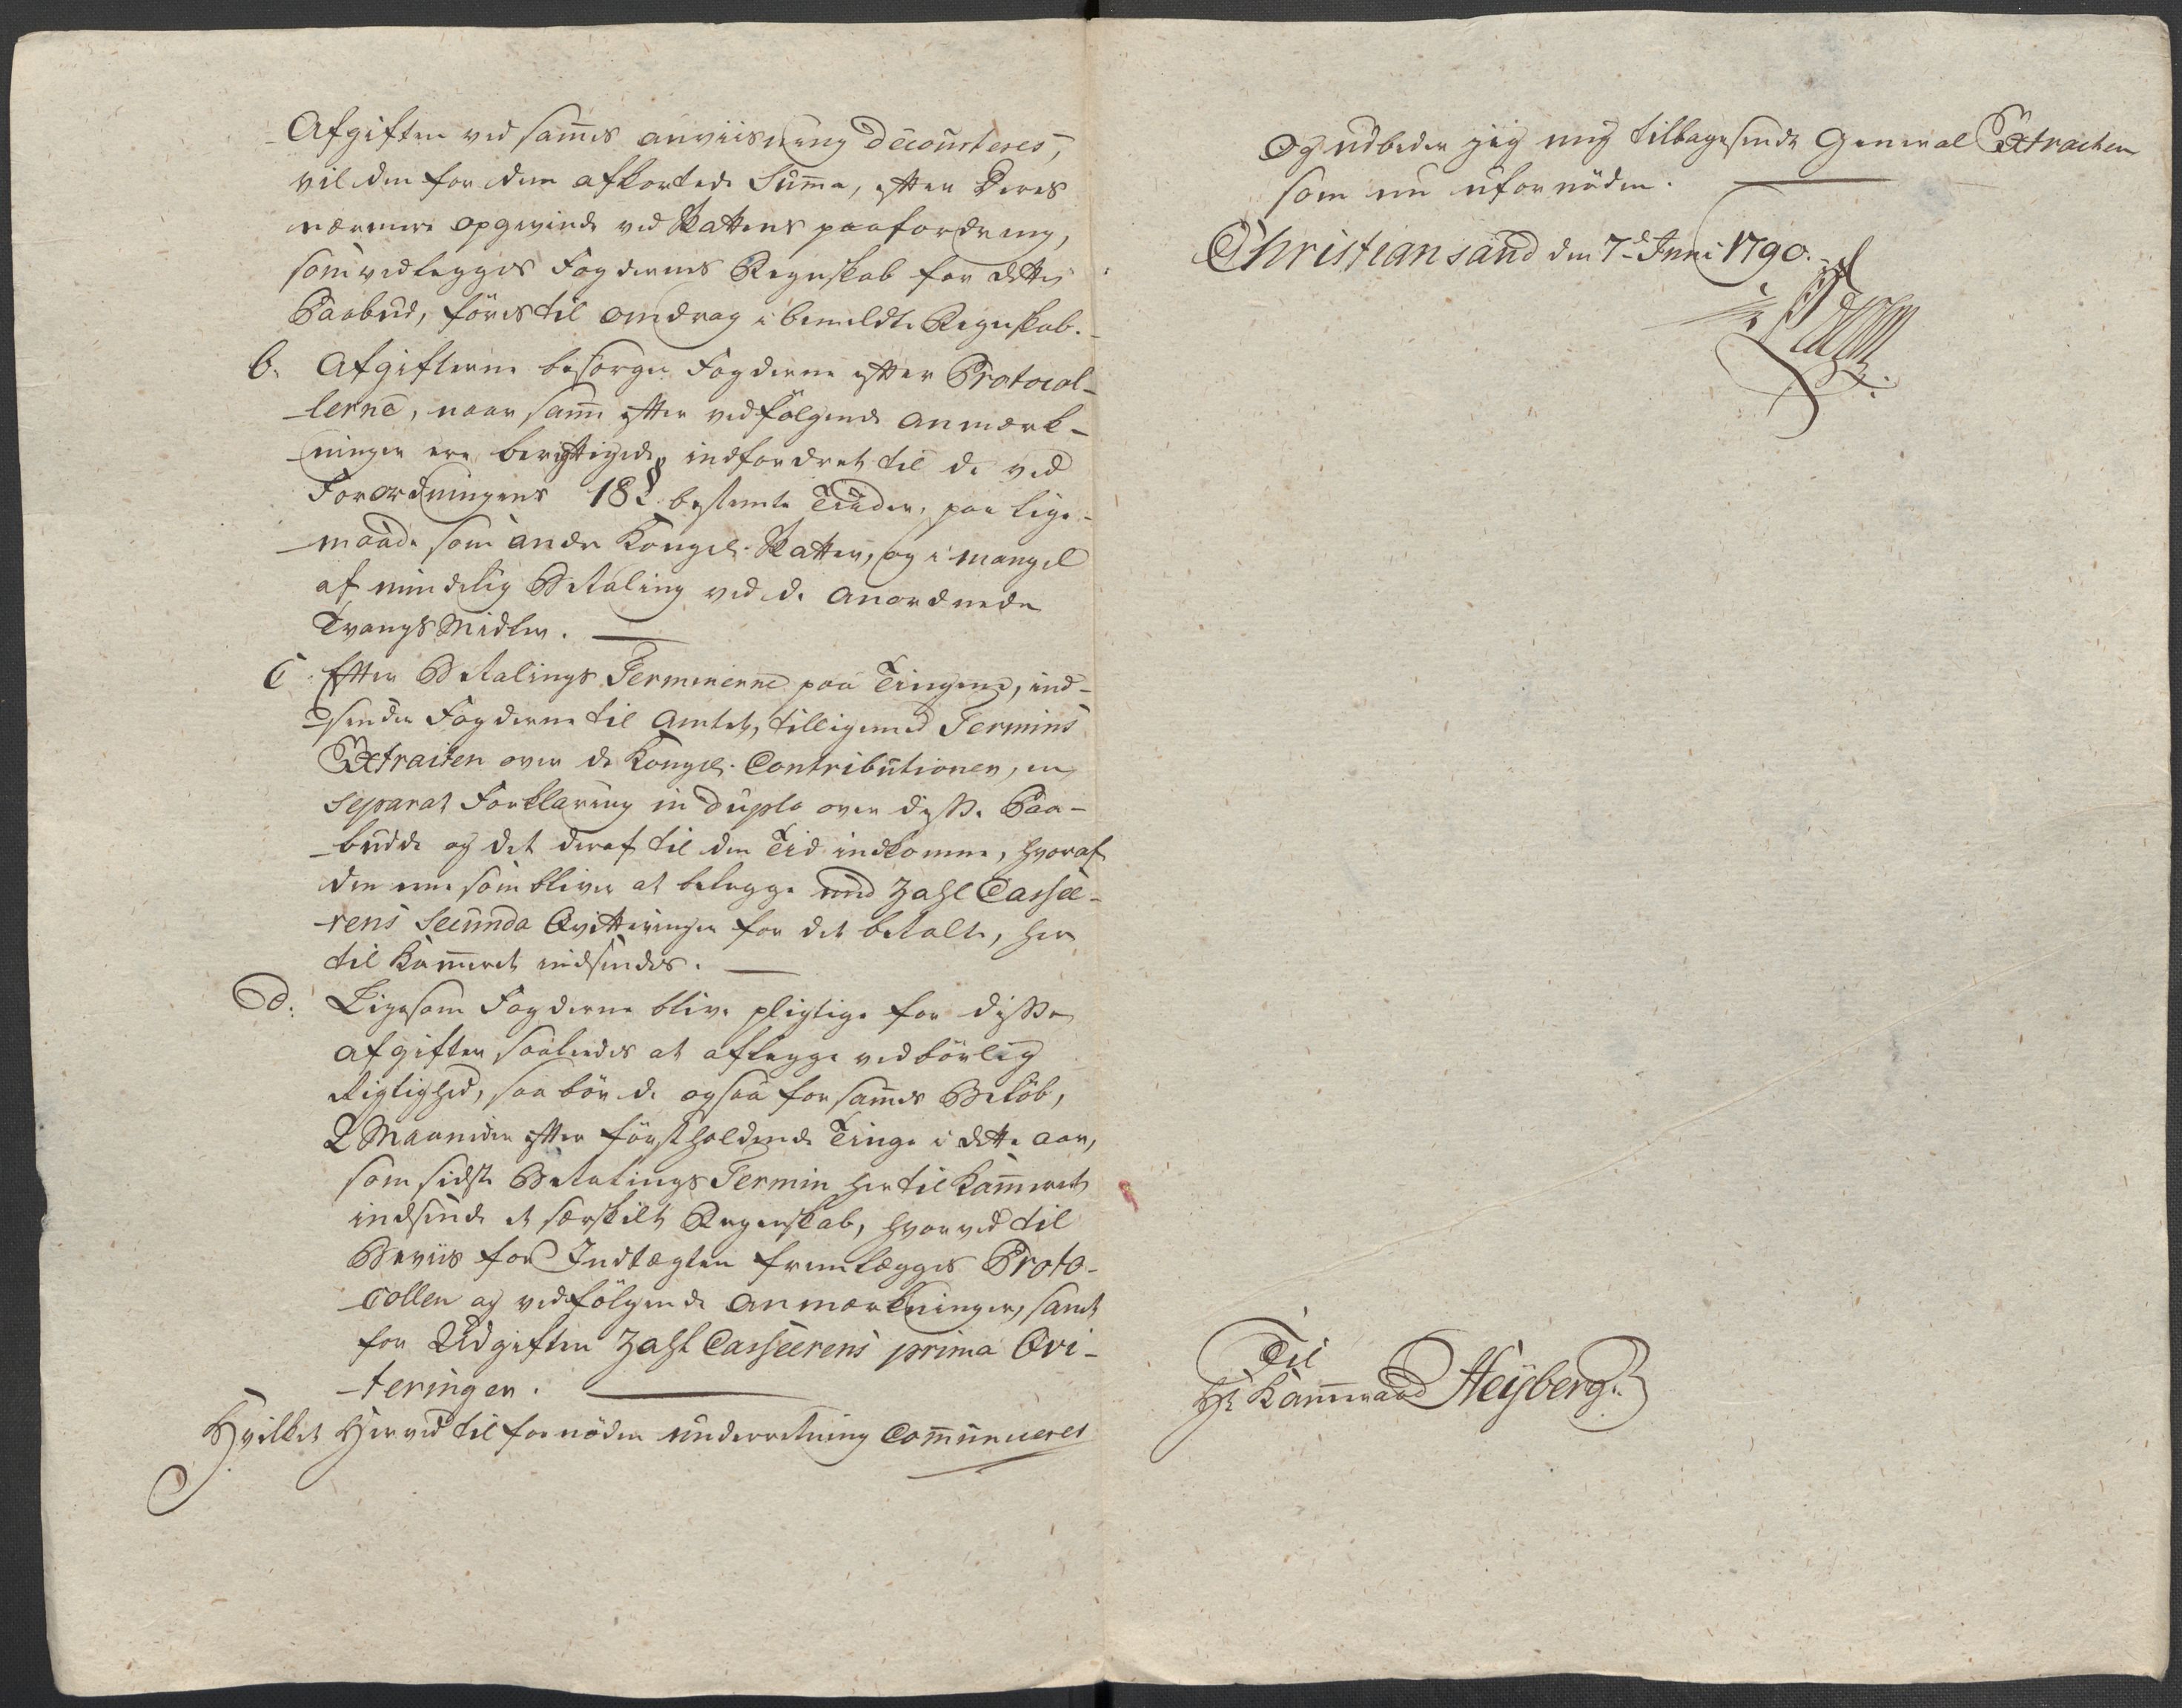 Afgiften ved sam̄es anviisning decourteres,
vil den for dem afkortede Sum̄a, efter Deres
nærmere opgivende ved Skattens paafordring,
som vedlegges Fogdernes Regnskab for dette
Paabud, föres til omdrag i bemeldte Regnskab.
b. Afgifterne besörger Fogderne efter Protocol-
lerne, naar sam̄e efter vedfölgende anmærk-
ninger ere berigtigede, indfordret til de ved
Forordningens 18 § bestemte Tiider, paa lige-
maade som andre Kongel. Skatter, og i mangel
af mindelig Betaling ved de anordnede
Tvangs Midler.
C. Efter Betalings Terminerne paa Tingene, ind-
sender Fogderne til Amtet, tilligemed Termins
Extracten over de Kongel. Contributioner, en
separat Forklaring in duplo over disse Paa-
budde og det deraf til den Tid indkomne, hvoraf
den eene som bliver at belegge med Zahl Cassee-
rens Secunda Qvitteringer for det betalte, her
til Kam̄eret indsendes.
d. Ligesom Fogderne blive pligtige for disse
afgifter saaledes at aflegge vedbörlig
Rigtighed, saa bör de ogsaa for sam̄es Belöb,
2 Maaneder efter förstholdende Tinge i dette aar,
som sidste Betalings Termin her til Kam̄eret
indsende et særskilt Regnskab, hvorved til
Beviis for Indtægten fremlægges Proto-
collen og vedfölgende anmærkninger, samt
for Udgiften Zahl Casseerens prima Qvi-
teringer.
Hvilket Herved til fornöden underretning Com̄uniceres
og udbeder jeg mig tilbagesendt General Extracten
som nu ufornöden.
Christiansand den 7de Juni 1790.
Til
Hr Kam̄erraad Heÿberg.